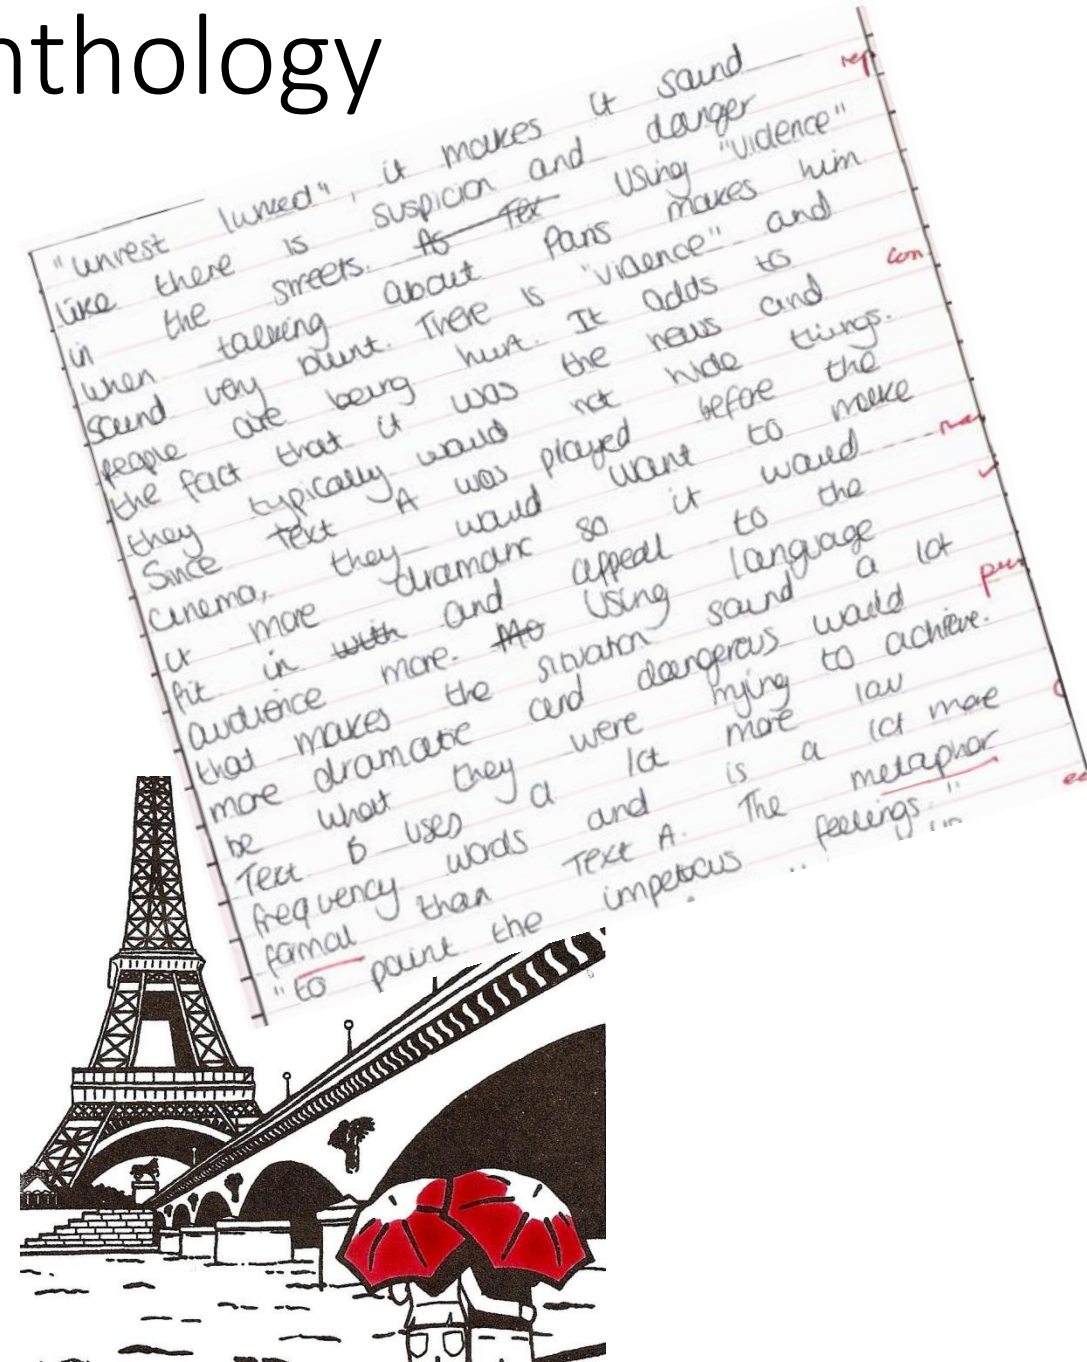 nthology
"unrest lurked", it makes it sound
like there is suspicion and danger
in the streets. As Tex Using "violence"
when talking about Paris makes him
sound very blunt. There is "violence" and
people are being hurt. It adds to
the fact that it was the news and
they typically would not hide things.
Since Text A was played before the
cinema, they would want to make
it more dramatic so it would
fit in with and appeal to the
audience more. Mo Using language
that makes the situation sound a lot
more dramatic and dangerous would
be what they were trying to achieve.
Text B uses a lot more low
frequency words and is a lot more
formal than Text A. The metaphor
"to paint the impetous feelings."
rep
con